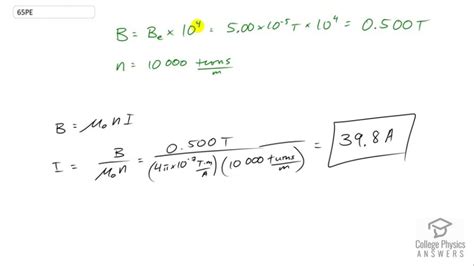 65PE
B = Bₑ × 10⁴ = 5.00×10⁻⁵ T × 10⁴ = 0.500 T
n = 10 000 turns/m
B = μ₀ n I
I = B/(μ₀n) = 0.500 T/((4π×10⁻⁷ T·m/A)(10 000 turns/m)) = 39.8 A
College Physics
ANSWERS